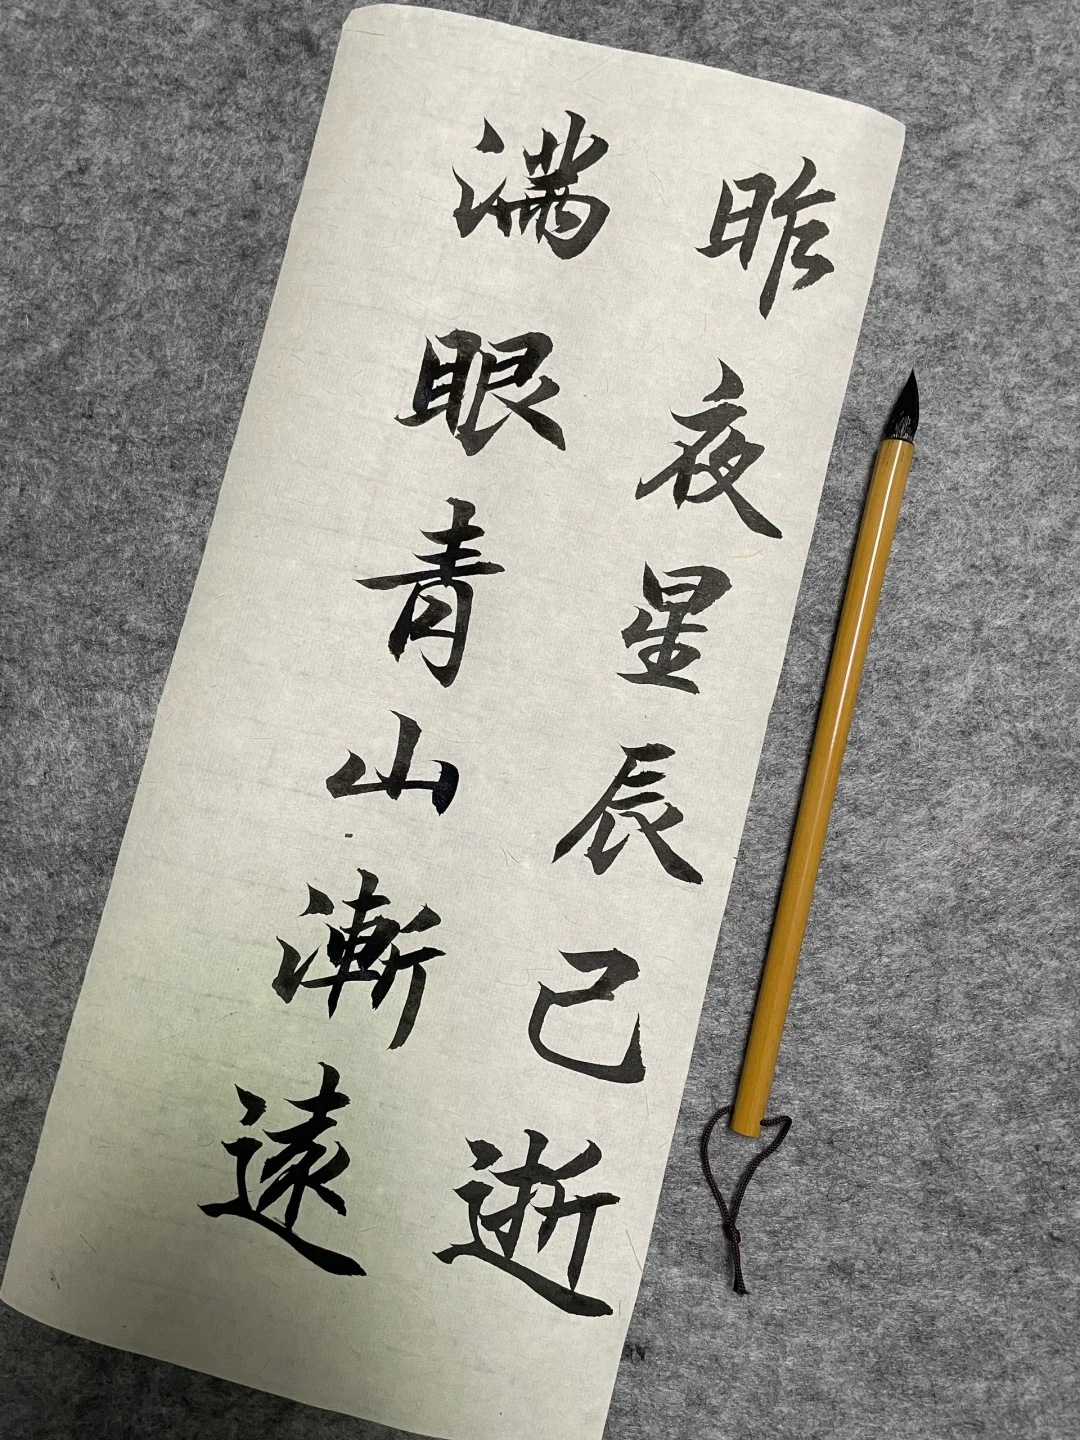 昨夜星辰已逝
满眼青山漸遠